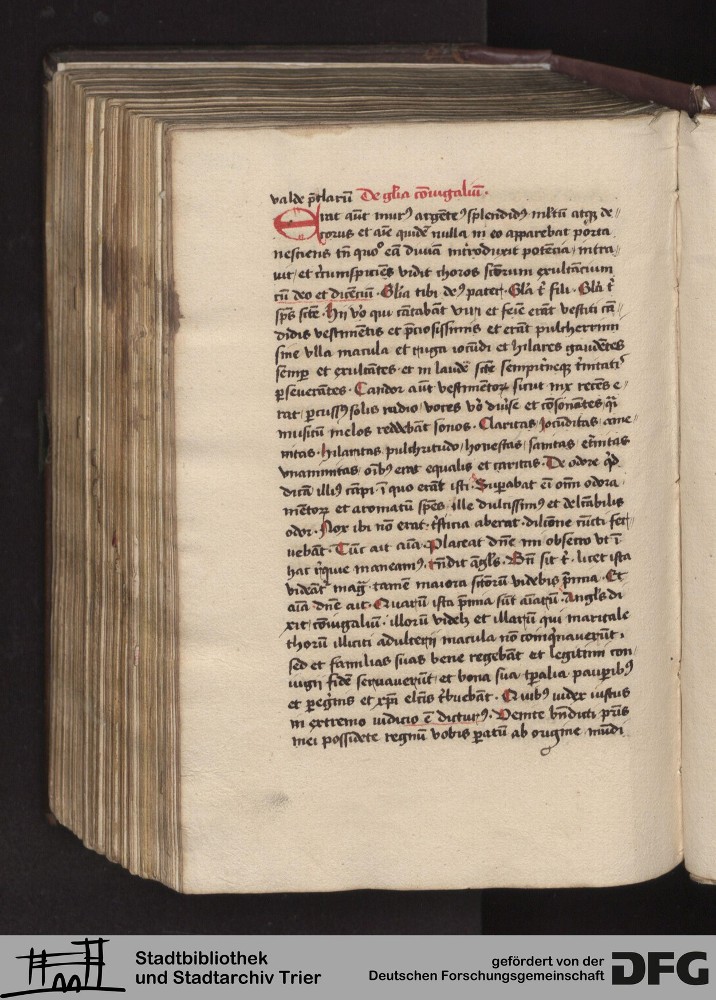 valde p̄clarū De gl̄ia cōiugaliū.
Erat aūt murꝰ argēteꝰ splendidꝰ ml̄tū atqꝫ de⸗
corus et aīe quidē nulla in eo apparebat porta
nesciens tn̄ quoº eā diuīa introduxit potēcia intra⸗
uit et c̄cumspiciēs vidit choros scōrum exultancium
cū deo et dicēciū. Gl̄ia tibi deꝰ pater. Gl̄a t̄ fili. Gl̄a t̄
sp̄s scē. Hii v̊o qui cātabāt viri et feīe erāt vestiti cā⸗
didis vestimētis et p̄ciosissimis et erāt pulcherrimi
sine vlla macula et ruga iocūdi et hilares gaudētes
semꝑ et exultātes et in laudē scē sempit̄neqꝫ t̄nitatis
ꝑseuerātes. Candor aūt vestimētoꝝ sicut nix recēs e⸗
rat ꝑcussꝰ solis radio voces v̊o diu̓se et cōsonātes q̄i
musicū melos reddebāt sonos. Claritas iocūditas ame
nitas. hilaritas pulchritudo honestas sanitas et̄nitas
vnanimitas oībꝰ erat equalis et caritas. De odore qd̄
dicā illiꝰ cāpi ī quo erāt isti. Suꝑabat eī om̄i odora⸗
mētoꝝ et aromatū sp̄es ille dulcissimꝰ et delc̄abilis
odor. Nox ibi nō erat. t̓sticia aberat. dilc̄one cūcti fer⸗
uebāt. Tūc ait aīa. Placeat dn̄e mi obsecro vt ī
hac r̄quie maneamꝰ. r̄ndit āgl̄s. Bn̄ sit t̄. licet ista
videāt̓ mag̃ tamē maiora scōrū videbis p̄mia. Et
aīa dn̄e ait. Quarū ista p̄mia sūt aīarū. Angl̄s di⸗
xit cōiugaliū. illorū videlꝫ et illarū qui maritale
thorū illiciti adulterij macula nō coinq̄nauerūt.
sed et familias suas bene regebāt et legitimi con⸗
iugij fidē seruauerūt et bona sua t̄palia pauꝑibꝰ
et ꝑeg̓nis et xp̄i ecl̄is t̓buebāt. Quibꝰ iudex iustus
in extremo iudicio ē dicturꝰ. Venite bn̄dicti pr̄is
mei possidete regnū vobis ꝑatū ab origine mūdi
Stadtbibliothek
und Stadtarchiv Trier
gefördert von der
Deutschen Forschungsgemeinschaft
DFG